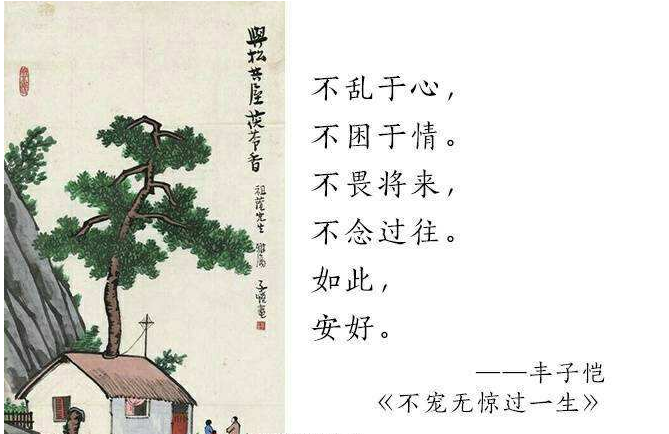 與松共屋茯苓香
子愷畫
不乱于心，
不困于情。
不畏将来，
不念过往。
如此，
安好。
——丰子恺
《不宠无惊过一生》